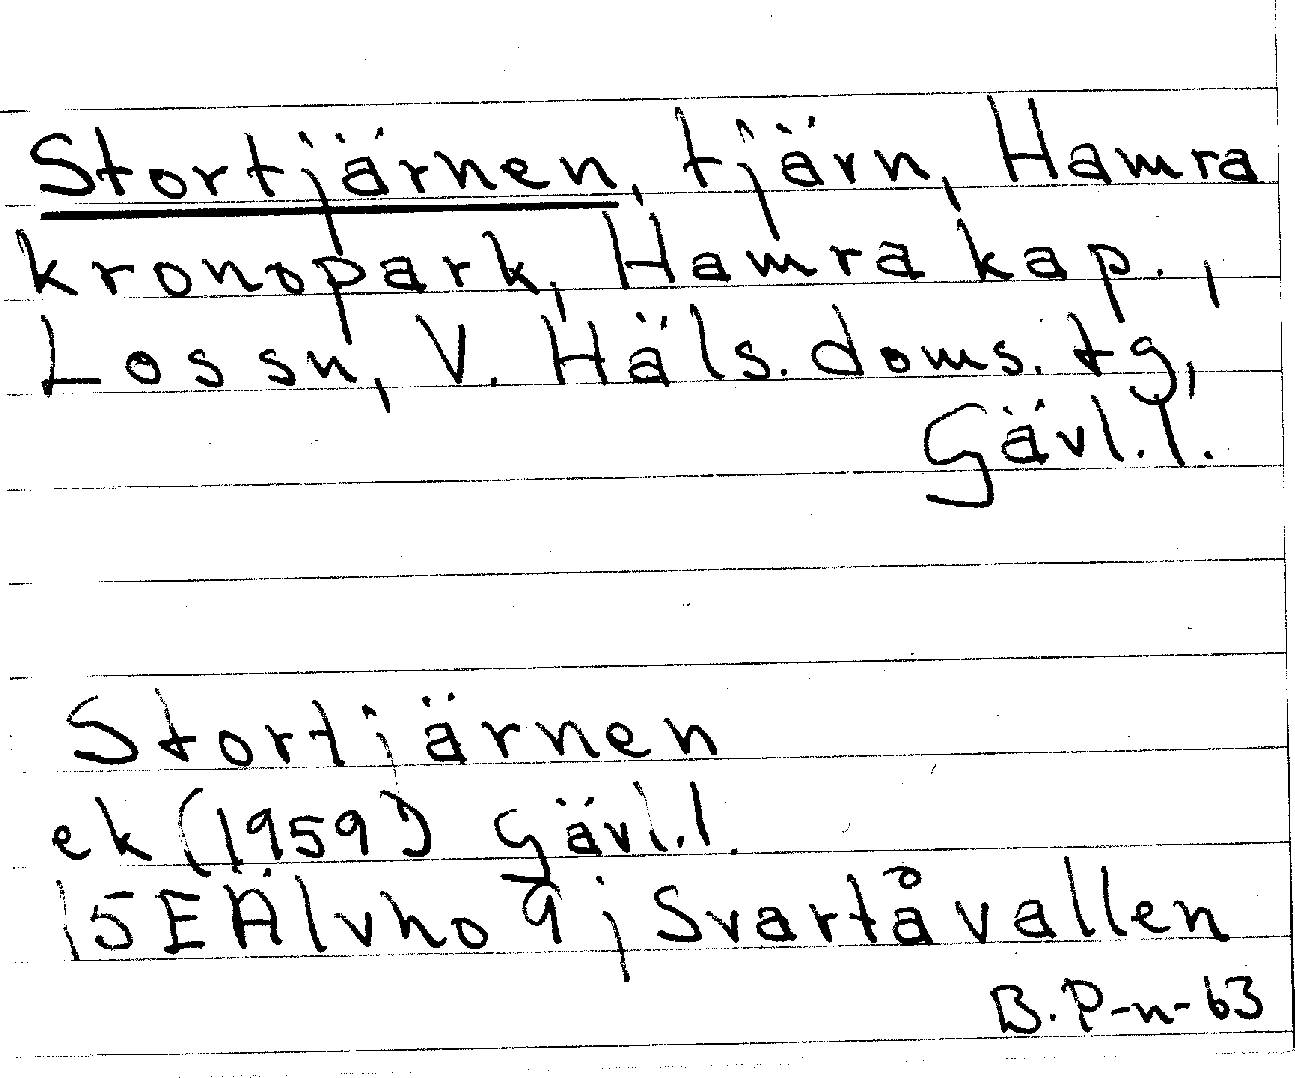 Stortjärnen, tjärn, Hamra
kronopark, Hamra kap.,
Lossn, V. Häls. doms. tg,
Gävl. l.
Stortjärnen
ek (1959) Gävl. l.
15E Älvho 9 j Svartåvallen
B. P-n-63